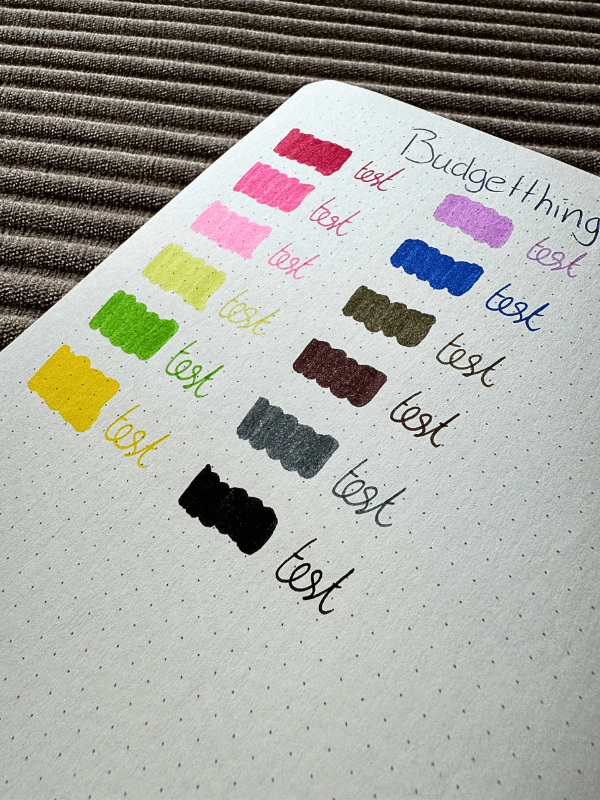 Budgetthing
test
test
test
test
test
test
test
test
test
test
test
test